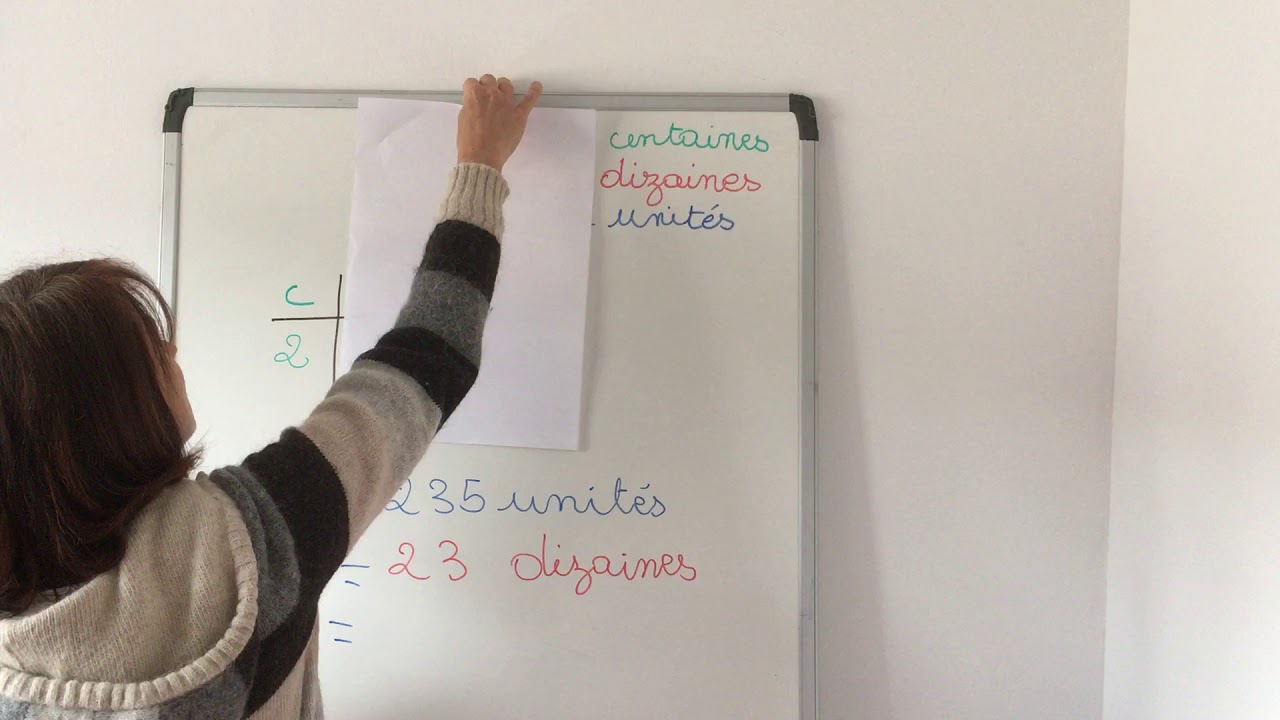 centaines
dizaines
unités
c
2
235 unités
= 23 dizaines
=